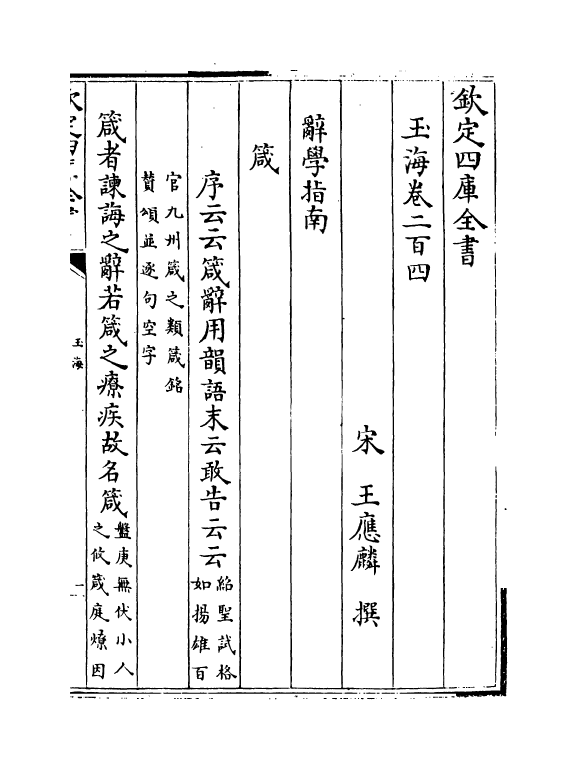 欽定四庫全書
玉海卷二百四
宋 王應麟 撰
辭學指南
箴
序云云箴辭用韻語末云敢告云云
紹聖試格
如揚雄百
官九州箴之類箴銘
贊頌並逐句空字
箴者諫誨之辭若箴之療疾故名箴
盤庚無伏小人
之攸箴庭燎因
玉海
一